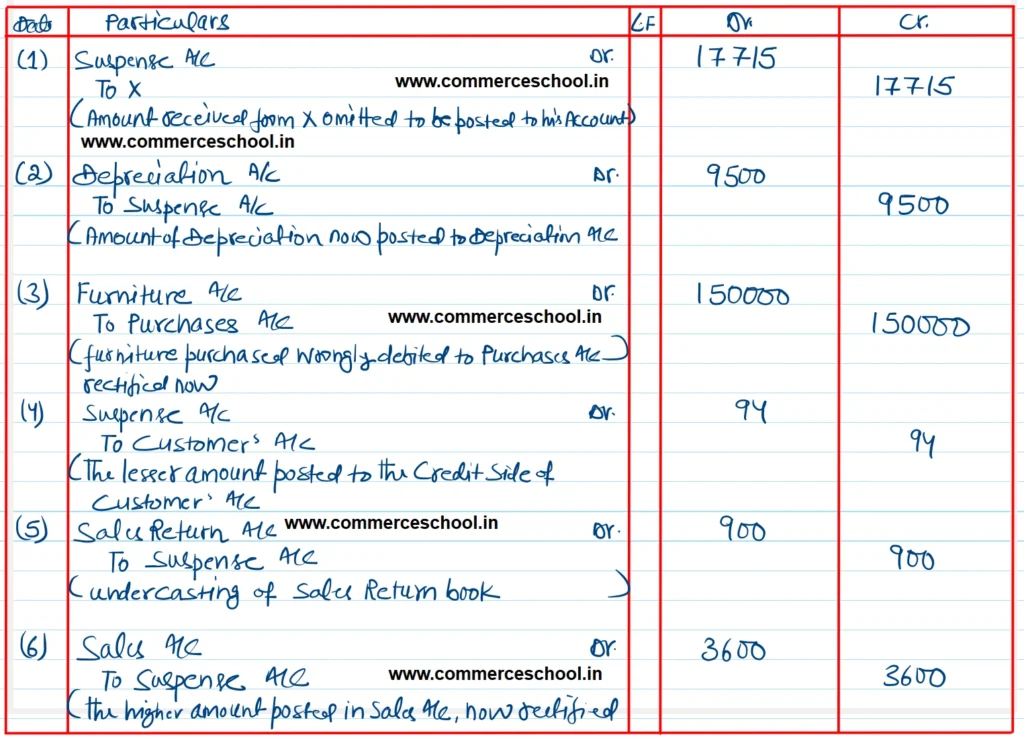 Date Particulars L.F Dr. Cr.
(1) Suspense A/c Dr. 17715
www.commerceschool.in
To X 17715
(Amount received from X omitted to be posted to his Account)
www.commerceschool.in
(2) Depreciation A/c Dr. 9500
To Suspense A/c 9500
(Amount of Depreciation now posted to Depreciation A/c
(3) Furniture A/c Dr. 150000
To Purchases A/c www.commerceschool.in 150000
(furniture purchased wrongly debited to Purchases A/c)
rectified now
(4) Suspense A/c Dr. 94
To Customer's A/c 94
(The lesser amount posted to the Credit Side of
Customer' A/c
(5) Sales Return A/c www.commerceschool.in Dr. 900
To Suspense A/c 900
(undercasting of Sales Return book)
(6) Sales A/c Dr. 3600
To Suspense A/c www.commerceschool.in 3600
(the higher amount posted in Sales A/c, now rectified